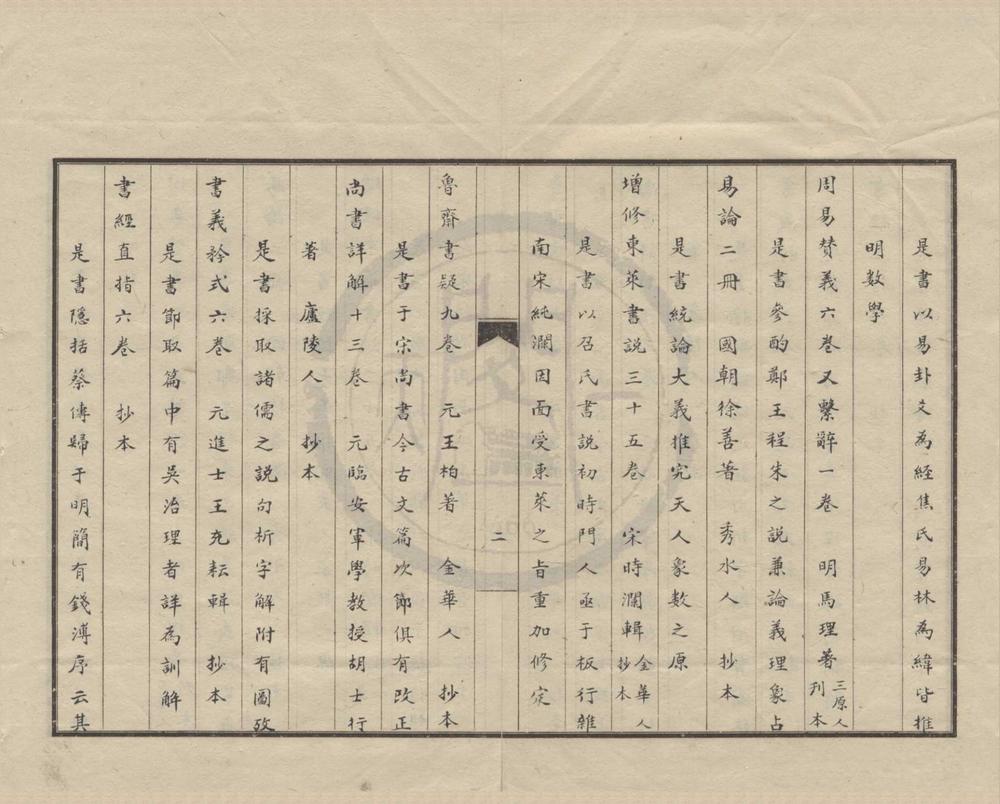 是書以易卦爻為經焦氏易林為緯皆推
明數學
周易贊義六卷又繫辭一卷 明馬理著 三原人 刊本
是書參酌鄭王程朱之説兼論義理象占
易論二冊 國朝徐善著 秀水人 抄本
是書統論大義推究天人象數之原
增修東萊書説三十五卷 宋時瀾輯 金華人 抄本
是書以召氏書説初時門人亟于板行雜
南宋純瀾因面受東萊之旨重加修定
二
魯齋書疑九卷 元王柏著 金華人 抄本
是書于宋尚書今古文篇次節俱有改正
尚書詳解十三卷 元臨安軍學教授胡士行
著 廬陵人 抄本
是書採取諸儒之説句析字解附有圖攷
書義矜式六卷 元進士王充耘輯 抄本
是書節取篇中有吳冶理者詳為訓解
書經直指六卷 抄本
是書隱括蔡傳歸于明簡有錢溥序云其